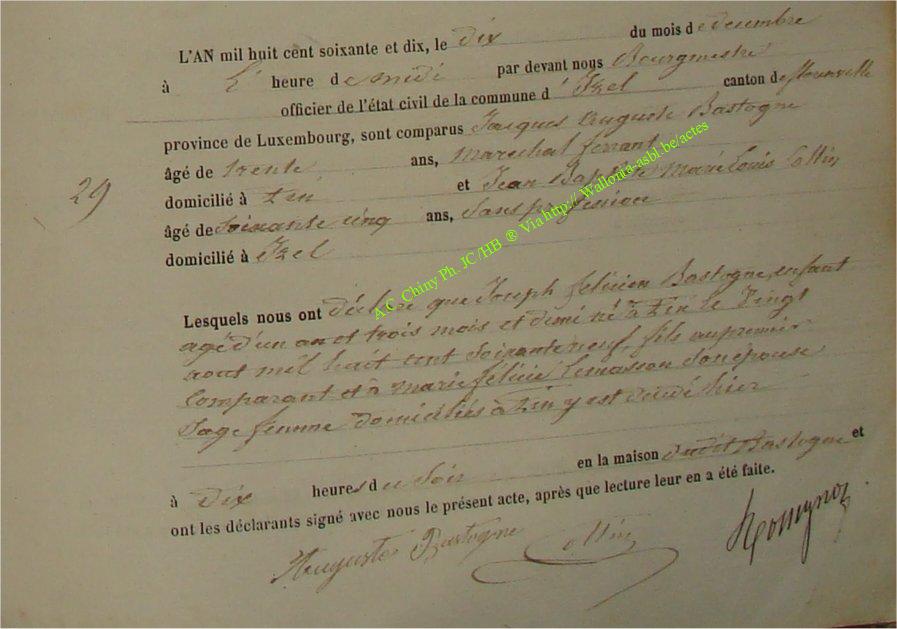 L'AN mil huit cent soixante et dix, le dix du mois de decembre
à L' heure de midi par devant nous Bourgmestre
officier de l'état civil de la commune d' Izel canton de florenville
province de Luxembourg, sont comparus Jacques Auguste Bastogne
âgé de trente ans, marechal ferrant
29
domicilié à Pin et Jean Baptiste Marie Louis Collin
âgé de soixante cinq ans, sans profession
domicilié à Izel
Lesquels nous ont déclaré que Joseph félicien Bastogne, enfant
agé d'un an et trois mois et demi né à Pin le Vingt
aout mil huit cent soixante neuf, fils au premier
comparant et à marie félicie Lemasson son épouse
sage femme domiciliés à Pin y est décédé hier
à dix heures du soir en la maison dudit Bastogne et
ont les déclarants signé avec nous le présent acte, après que lecture leur en a été faite.
Auguste Bastogne Collin
A.C. Chiny Ph. JC/HB ® Via http:// Wallonia-asbl.be/actes